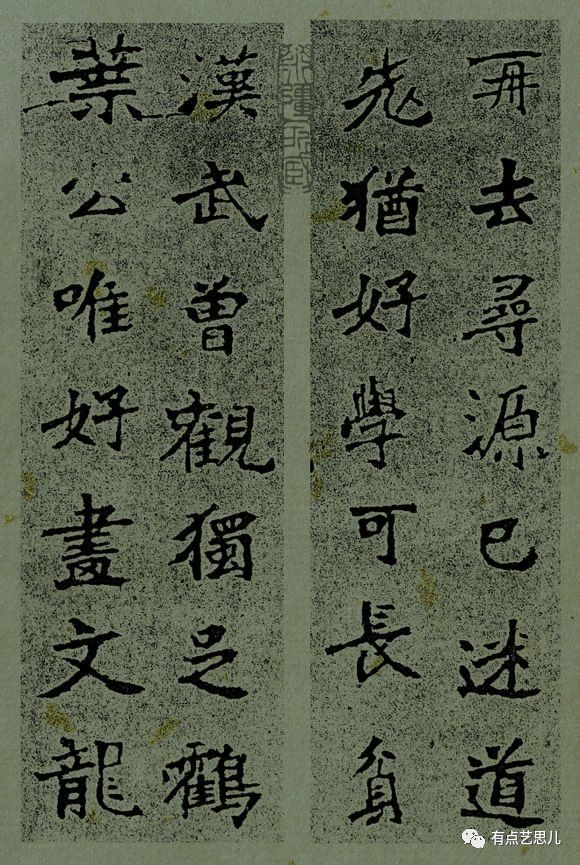 再去尋源已迷道
猶好學可長貧
漢武曾觀獨足鸖
葉公唯好畫文龍
有点艺思儿